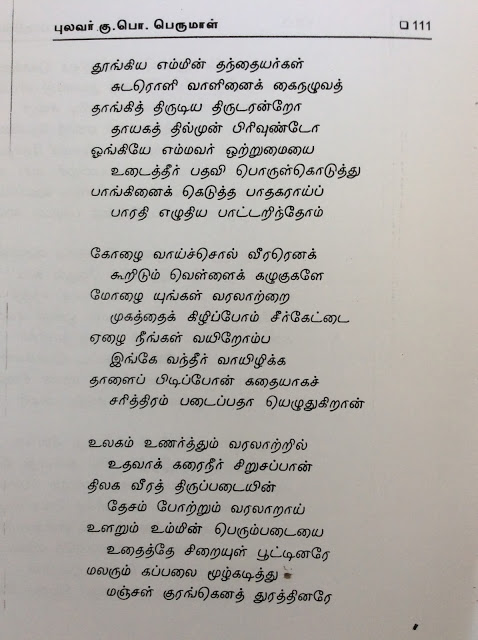 புலவர் கு.பொ. பெருமாள் ❑ 111
தூங்கிய எம்மின் தந்தையர்கள்
சுடரொளி வாளினைக் கைநழுவத்
தாங்கித் திருடிய திருடரன்றோ
தாயகத் தில்முன் பிரிவுண்டோ
ஓங்கியே எம்மவர் ஒற்றுமையை
உடைத்தீர் பதவி பொருள்கொடுத்து
பாங்கினைக் கெடுத்த பாதகராய்ப்
பாரதி எழுதிய பாட்டறிந்தோம்
கோழை வாய்ச்சொல் வீரரெனக்
கூறிடும் வெள்ளைக் கழுகுகளே
மோழை யுங்கள் வரலாற்றை
முகத்தைக் கிழிப்போம் சீர்கேட்டை
ஏழை நீங்கள் வயிறோம்ப
இங்கே வந்தீர் வாயிழிக்க
தாளைப் பிடிப்போன் கதையாகச்
சரித்திரம் படைப்பதா யெழுதுகிறான்
உலகம் உணர்த்தும் வரலாற்றில்
உதவாக் கரைநீர் சிறுசப்பான்
திலக வீரத் திருப்படையின்
தேசம் போற்றும் வரலாறாய்
உளறும் உம்மின் பெரும்படையை
உதைத்தே சிறையுள் பூட்டினரே
மலரும் கப்பலை மூழ்கடித்து
மஞ்சள் குரங்கெனத் துரத்தினரே